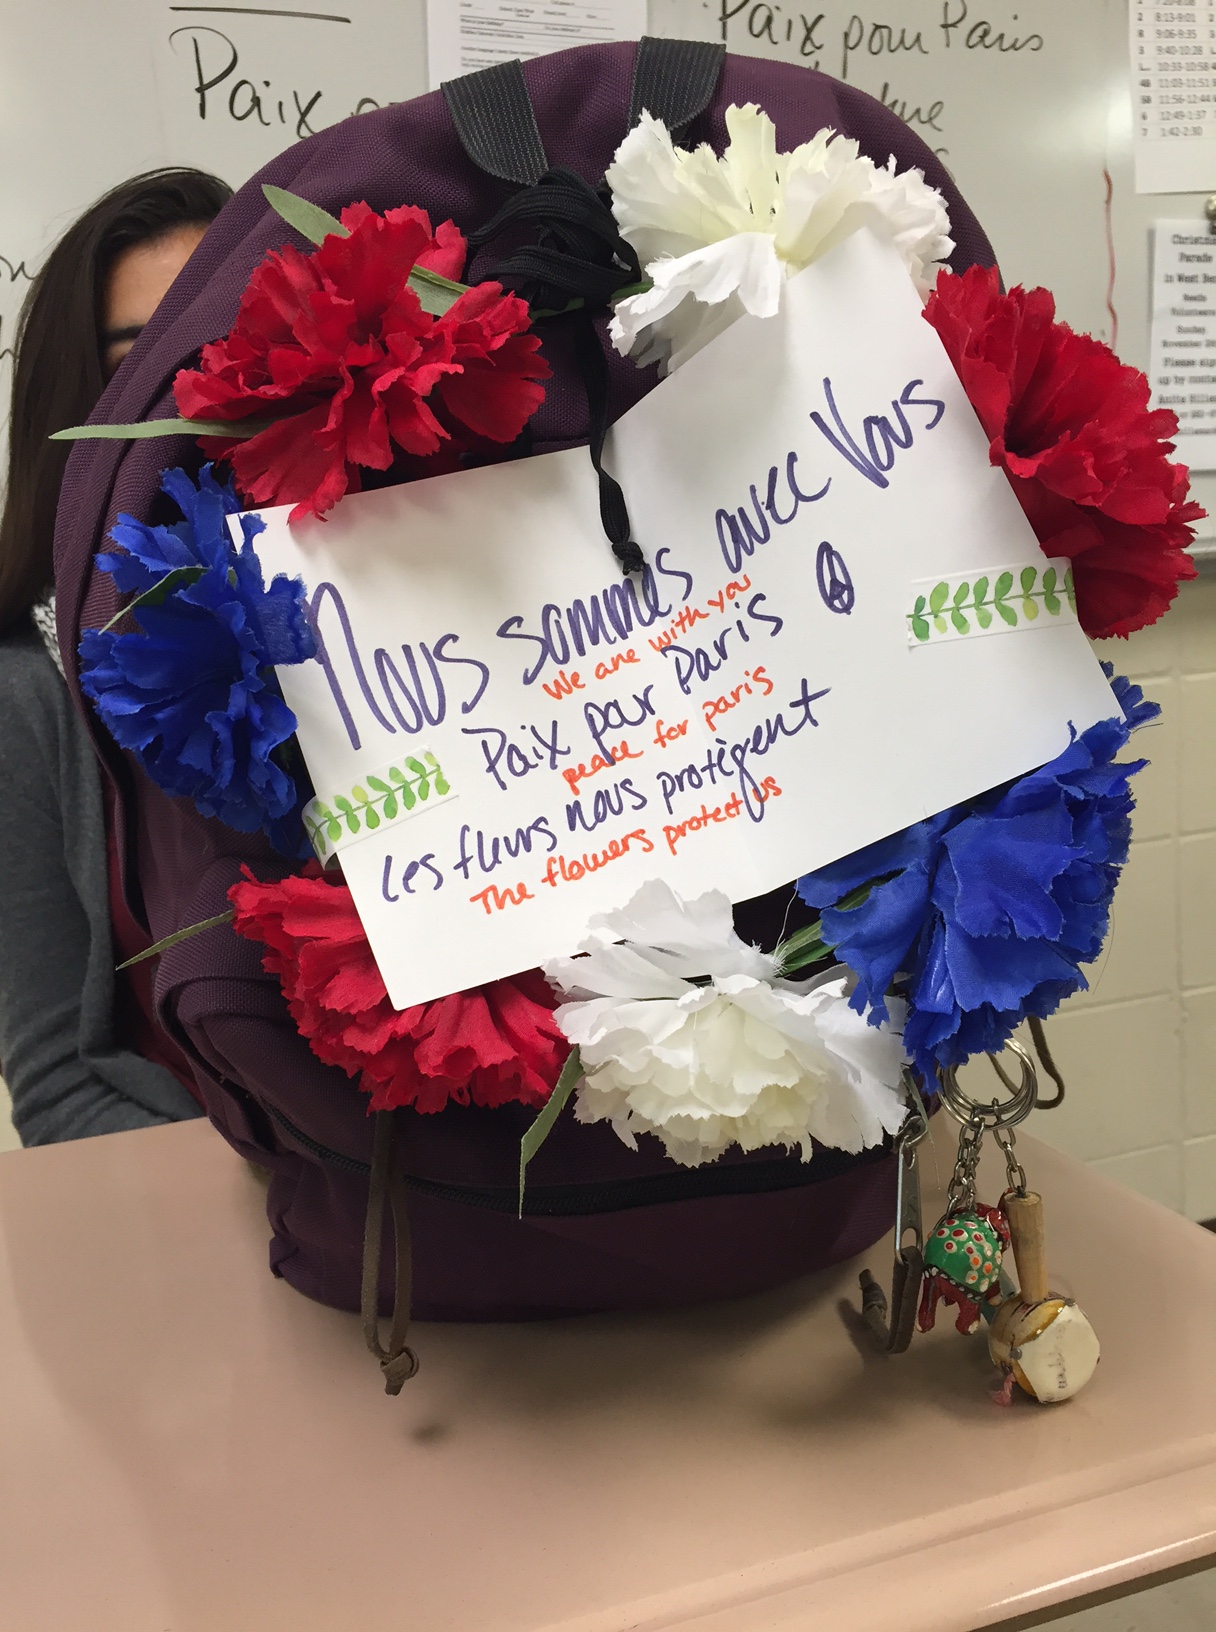 Paix
Paix pour Paris
7:20-8:08
2 8:13-9:01
R 9:06-9:35
3 9:40-10:28
10:33-10:58
4B 11:03-11:51
5B 11:56-12:44
6 12:49-1:37
7 1:42-2:30
Christmas
Parade
in West Ben
Needs
Volunteers
Sunday
November
Please sign
up by
Anita
Nous sommes avec Vous
We are with you
Paix pour Paris
peace for paris
Les fleurs nous protègent
The flowers protect us